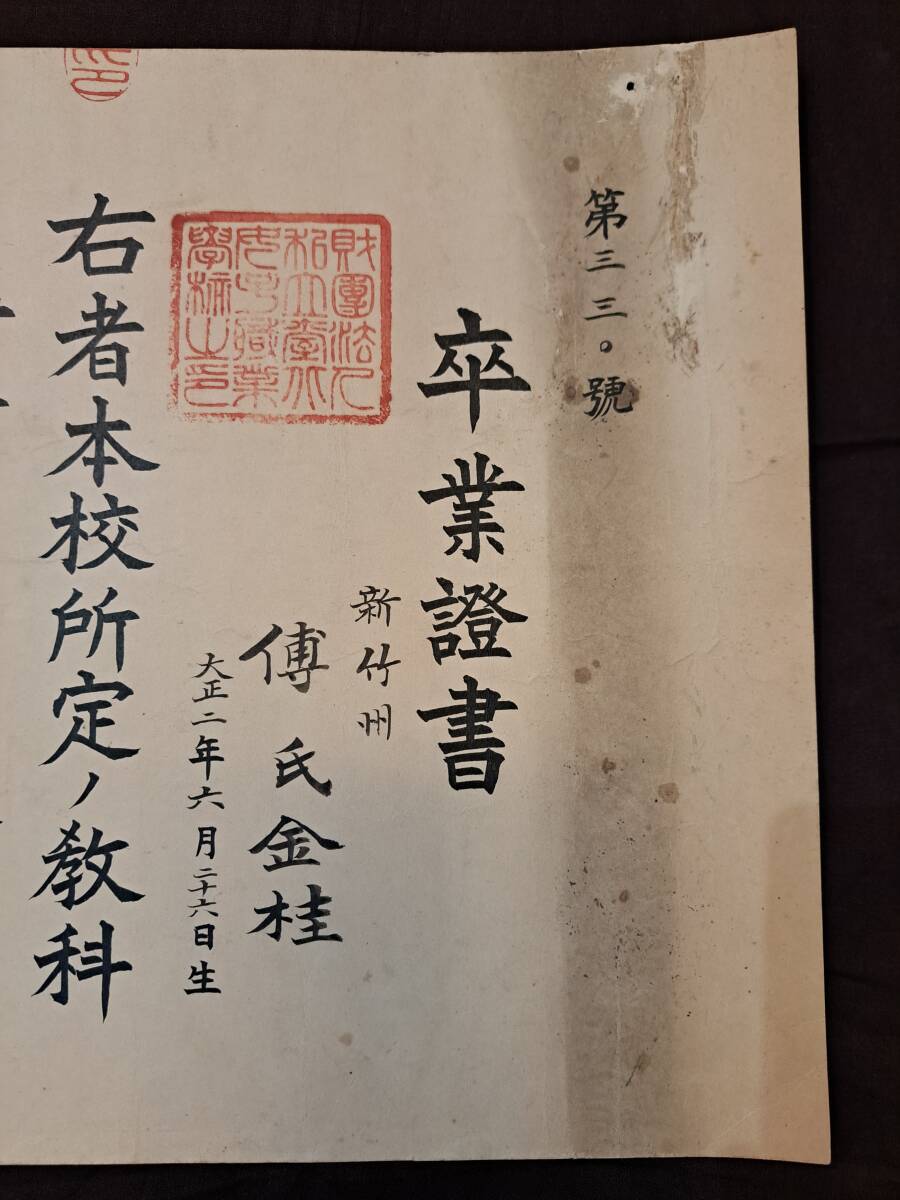 第三三〇號
卒業證書
新竹州
傅氏金桂
大正二年六月二十六日生
財團法人
私立臺北
女子職業
學校之印
右者本校所定ノ教科